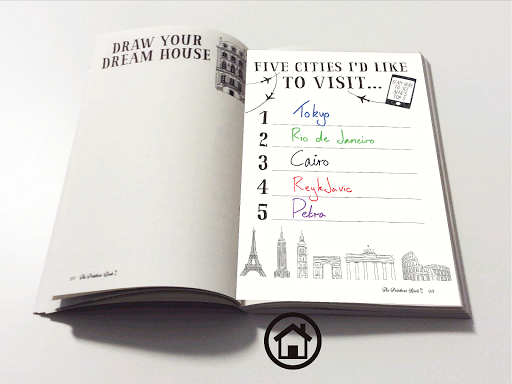 DRAW YOUR
DREAM HOUSE
FIVE CITIES I'D LIKE
TO VISIT...
1 Tokyo
2 Rio de Janeiro
3 Cairo
4 Reykjavic
5 Petra
The Pointless Book 2
The Pointless Book 2